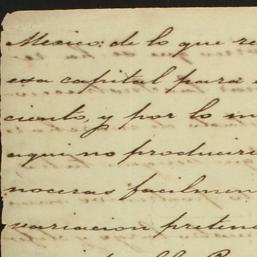 Mexico: de lo que re
esa capital para
ciento, y por lo m
aqui no producir
noceras facilmen
variacion preten